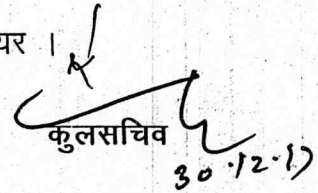 यर ।
कुलसचिव
30.12.17